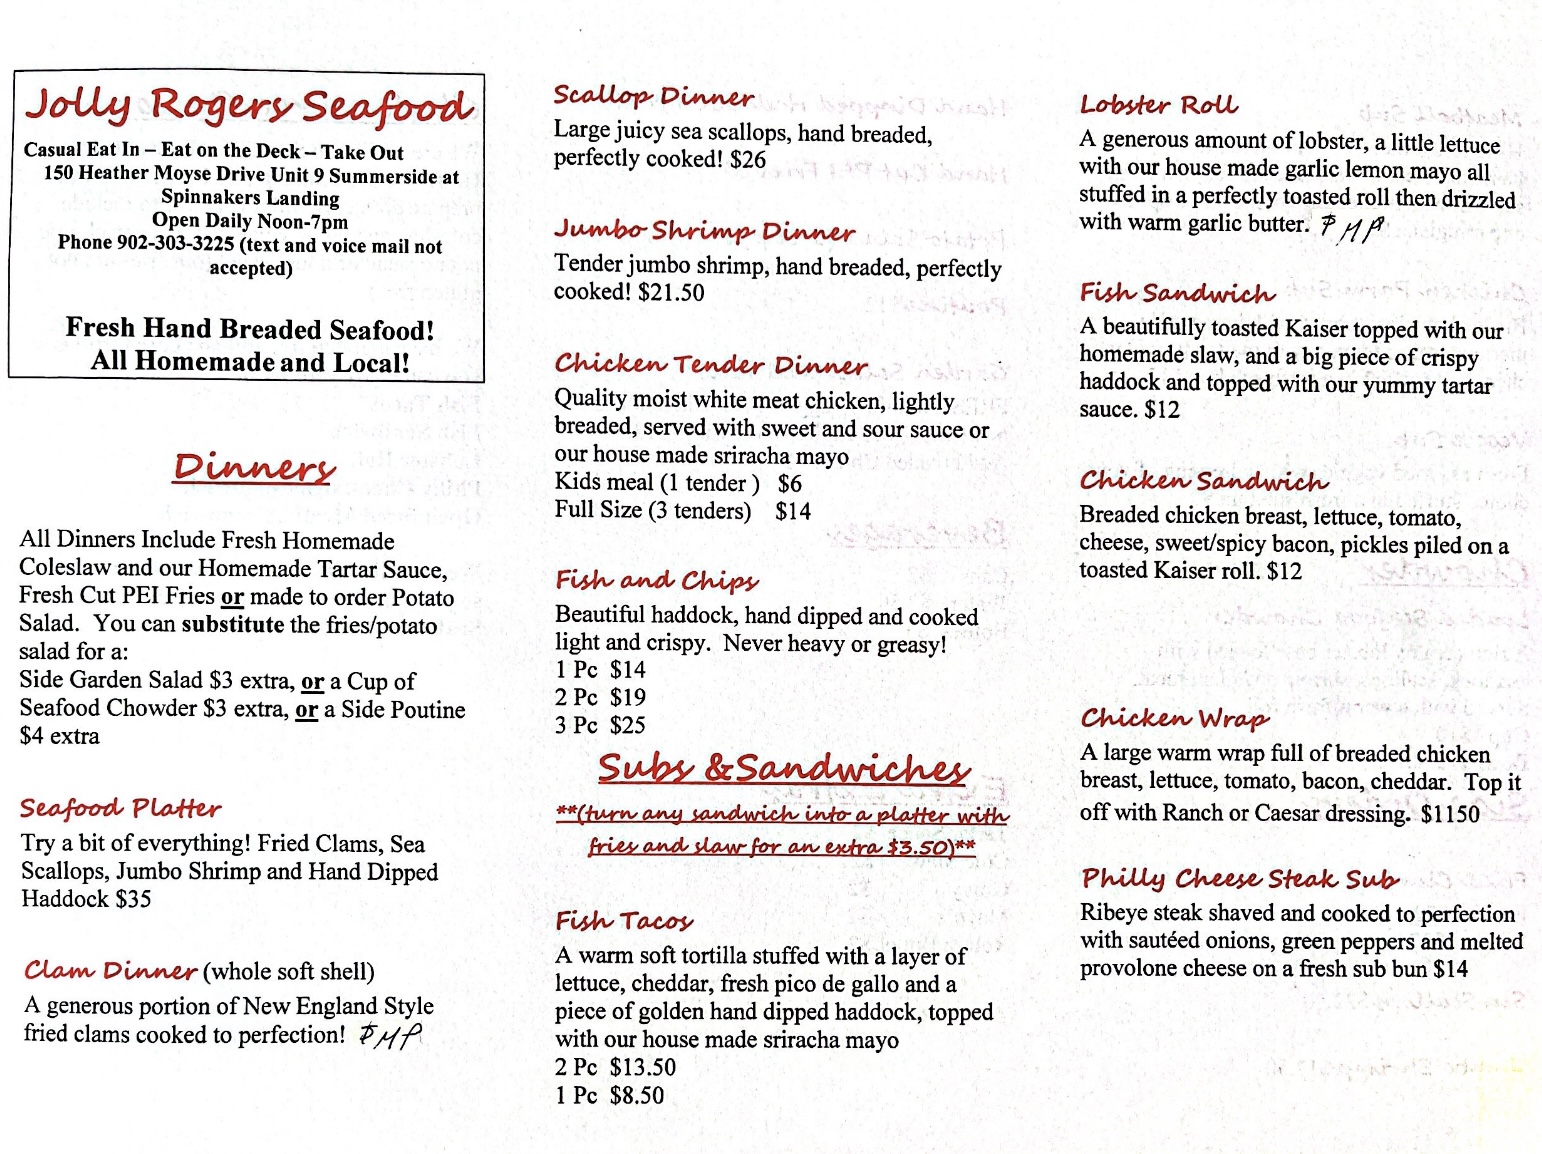 Jolly Rogers Seafood
Casual Eat In – Eat on the Deck – Take Out
150 Heather Moyse Drive Unit 9 Summerside at
Spinnakers Landing
Open Daily Noon-7pm
Phone 902-303-3225 (text and voice mail not
accepted)
Fresh Hand Breaded Seafood!
All Homemade and Local!
Dinners
All Dinners Include Fresh Homemade
Coleslaw and our Homemade Tartar Sauce,
Fresh Cut PEI Fries or made to order Potato
Salad. You can substitute the fries/potato
salad for a:
Side Garden Salad $3 extra, or a Cup of
Seafood Chowder $3 extra, or a Side Poutine
$4 extra
Seafood Platter
Try a bit of everything! Fried Clams, Sea
Scallops, Jumbo Shrimp and Hand Dipped
Haddock $35
Clam Dinner (whole soft shell)
A generous portion of New England Style
fried clams cooked to perfection! $MP
Scallop Dinner
Large juicy sea scallops, hand breaded,
perfectly cooked! $26
Jumbo Shrimp Dinner
Tender jumbo shrimp, hand breaded, perfectly
cooked! $21.50
Chicken Tender Dinner
Quality moist white meat chicken, lightly
breaded, served with sweet and sour sauce or
our house made sriracha mayo
Kids meal (1 tender ) $6
Full Size (3 tenders) $14
Fish and Chips
Beautiful haddock, hand dipped and cooked
light and crispy. Never heavy or greasy!
1 Pc $14
2 Pc $19
3 Pc $25
Subs &Sandwiches
**(turn any sandwich into a platter with
fries and slaw for an extra $3.50)**
Fish Tacos
A warm soft tortilla stuffed with a layer of
lettuce, cheddar, fresh pico de gallo and a
piece of golden hand dipped haddock, topped
with our house made sriracha mayo
2 Pc $13.50
1 Pc $8.50
Lobster Roll
A generous amount of lobster, a little lettuce
with our house made garlic lemon mayo all
stuffed in a perfectly toasted roll then drizzled
with warm garlic butter. $MP
Fish Sandwich
A beautifully toasted Kaiser topped with our
homemade slaw, and a big piece of crispy
haddock and topped with our yummy tartar
sauce. $12
Chicken Sandwich
Breaded chicken breast, lettuce, tomato,
cheese, sweet/spicy bacon, pickles piled on a
toasted Kaiser roll. $12
Chicken Wrap
A large warm wrap full of breaded chicken
breast, lettuce, tomato, bacon, cheddar. Top it
off with Ranch or Caesar dressing. $1150
Philly Cheese Steak Sub
Ribeye steak shaved and cooked to perfection
with sautéed onions, green peppers and melted
provolone cheese on a fresh sub bun $14